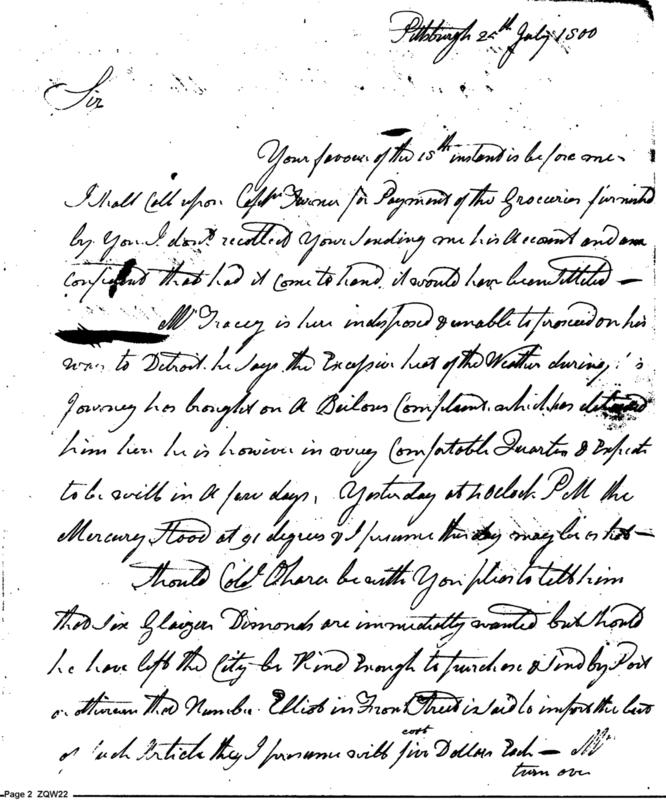 Pittsburgh 24th July 1800
Sir
Your favour of the 15th instant is before me
I shall Call upon Captn Turner for Payment of the Groceries furnished
by You I don't recollect Your sending me his Account and am
confident that had it Come to hand it would have been settled —
Mr Tracey is here indisposed & unable to proceed on his
way to Detroit he says the Excessive heat of the Weather during his
Journey has brought on A Beilous Complaint which has detained
him here he is however in very Comfortable Quarters & Expects
to be well in A few days, Yesterday at 4 oClock P.M. the
Mercury Stood at 91 degrees & I presume this day may be as hot —
Should Cold. Ohara be with You please to tell him
that Six Glaizers Dimonds are immediatly wanted but should
he have left the City be Kind Enough to purchase & send by Post
or otherwise that Number Elliot in Front Street is said to import the best
of Such Article they I presume will cost five Dollars Each — Mr
turn over
Page 2 ZQW22